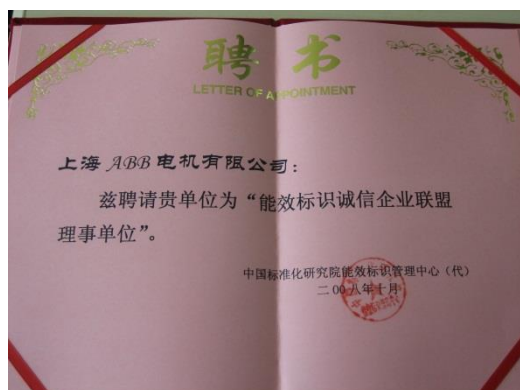 聘书
LETTER OF APPOINTMENT
上海 ABB 电机有限公司：
兹聘请贵单位为“能效标识诚信企业联盟
理事单位”。
中国标准化研究院能效标识管理中心（代）
二00八年十月